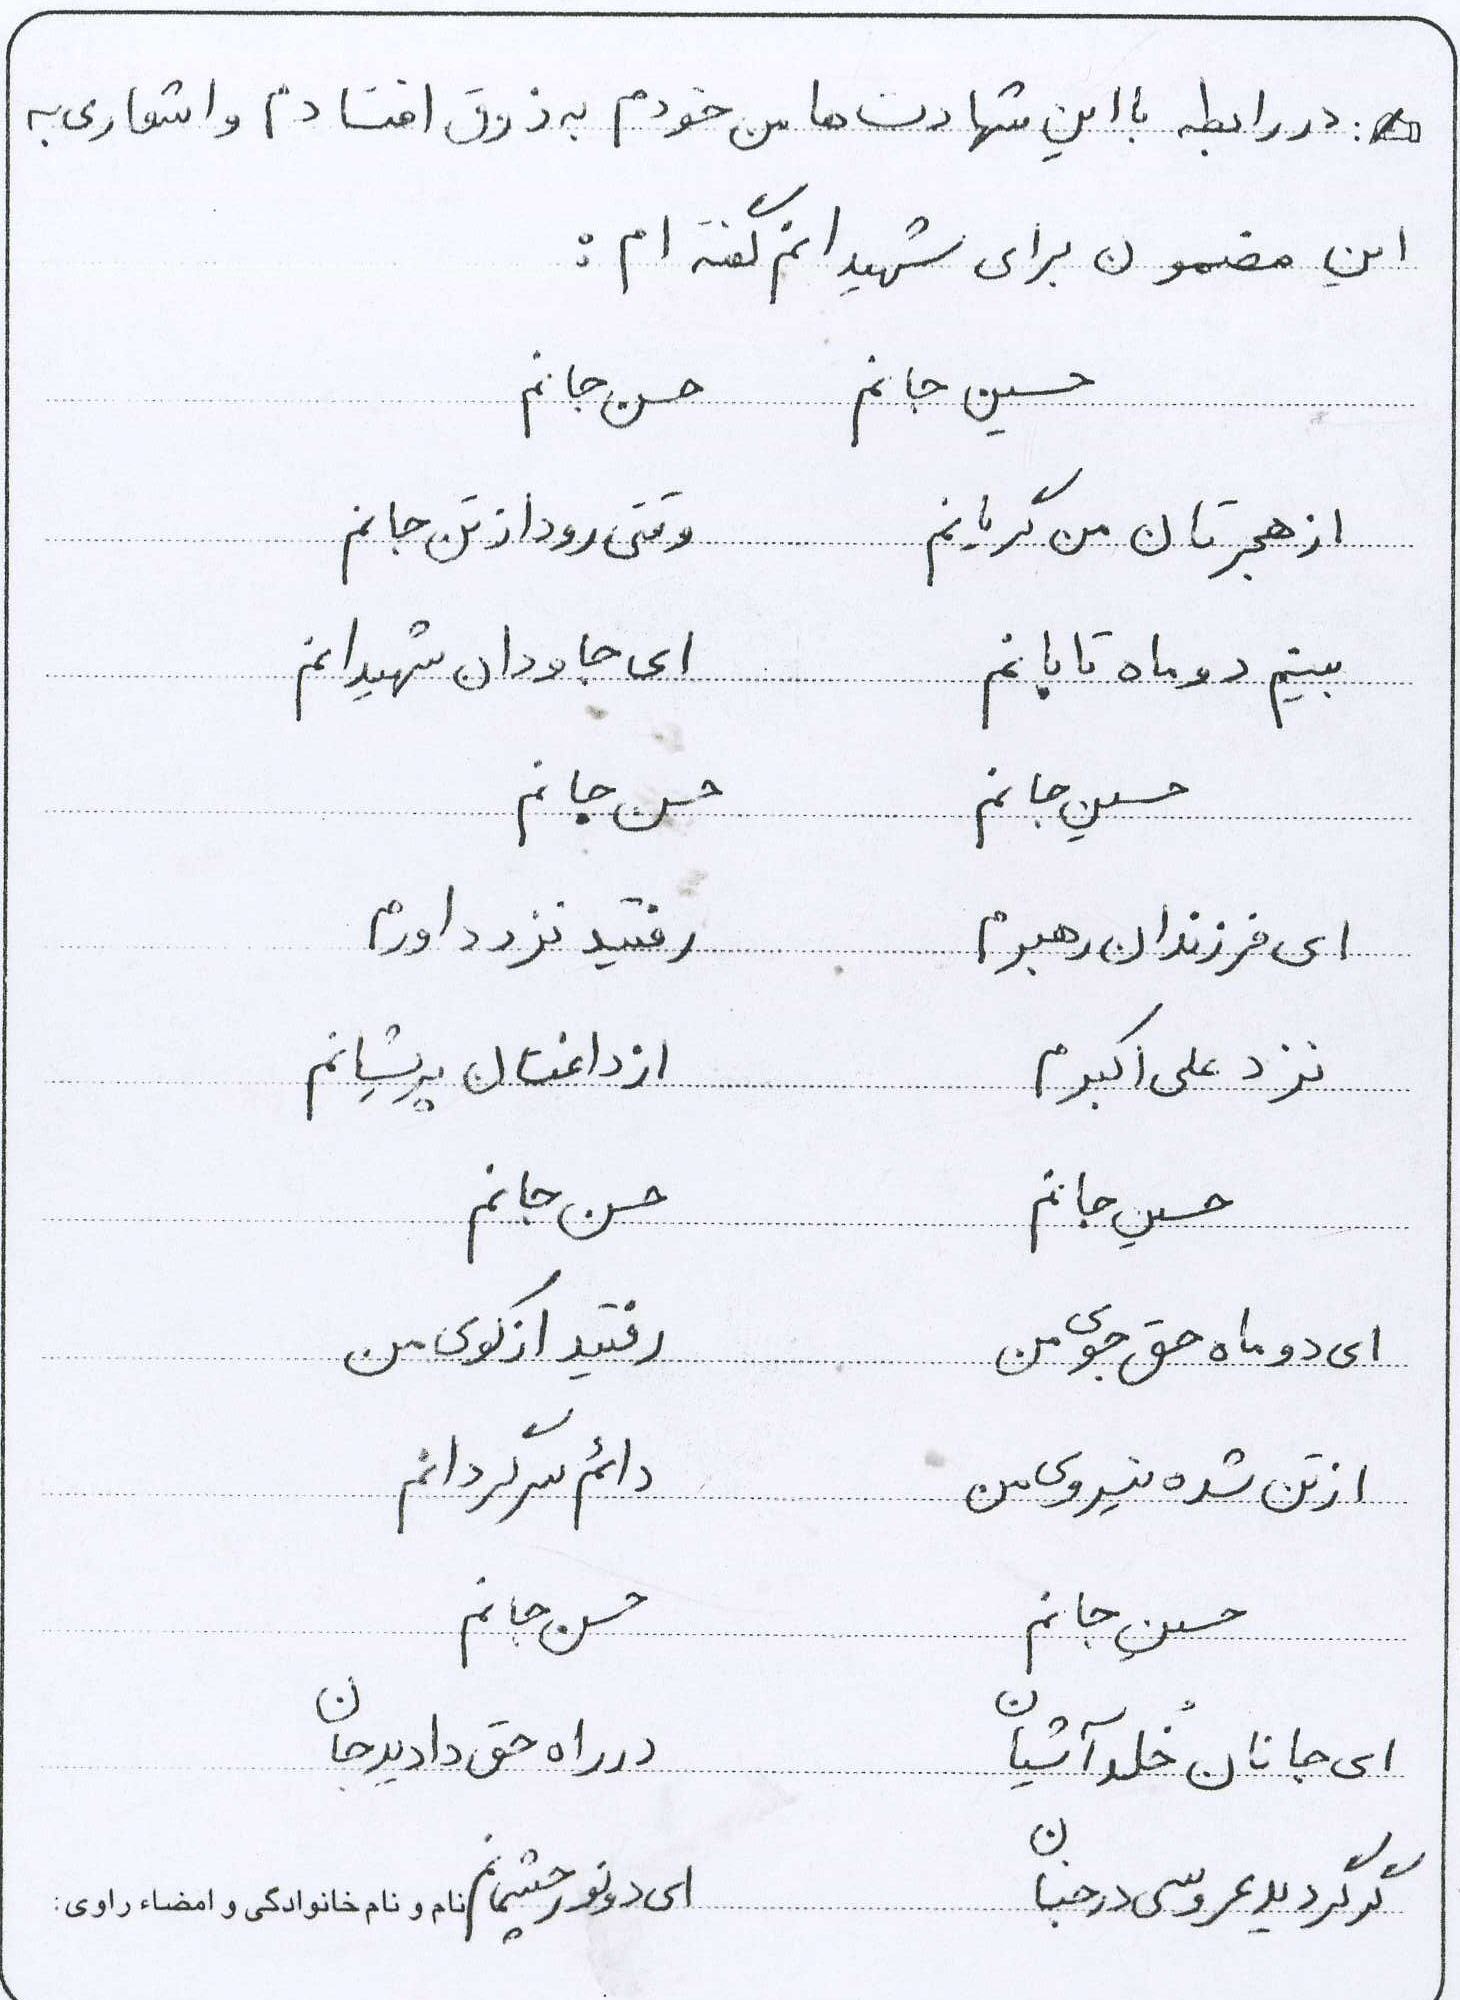 در رابطه با این شهادت ها من خودم به ذوق افتادم و اشعاری به
این مضمون برای شهیدانم گفته ام :
حسین جانم حسن جانم
از هجرتان من گریانم وقتی رود از تن جانم
بینم دو ماه تابانم ای جاودان شهیدانم
حسین جانم حسن جانم
ای فرزندان رهبرم رفتید نزد داورم
نزد علی اکبرم از داغتان پریشانم
حسین جانم حسن جانم
ای دو ماه حق جوی من رفتید از کوی من
از تن شده نیروی من دائم سرگردانم
حسین جانم حسن جانم
ای جانان خُلد آشیان در راه حق دادید جان
گر گردید عروسی در جنان ای دو نور چشمانم
نام و نام خانوادگی و امضاء راوی: